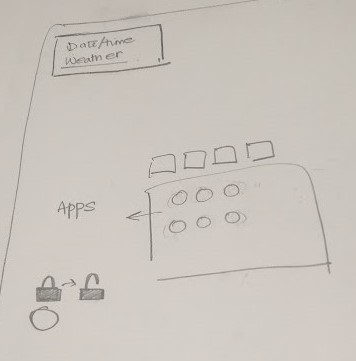 Date/time
Weather
Apps